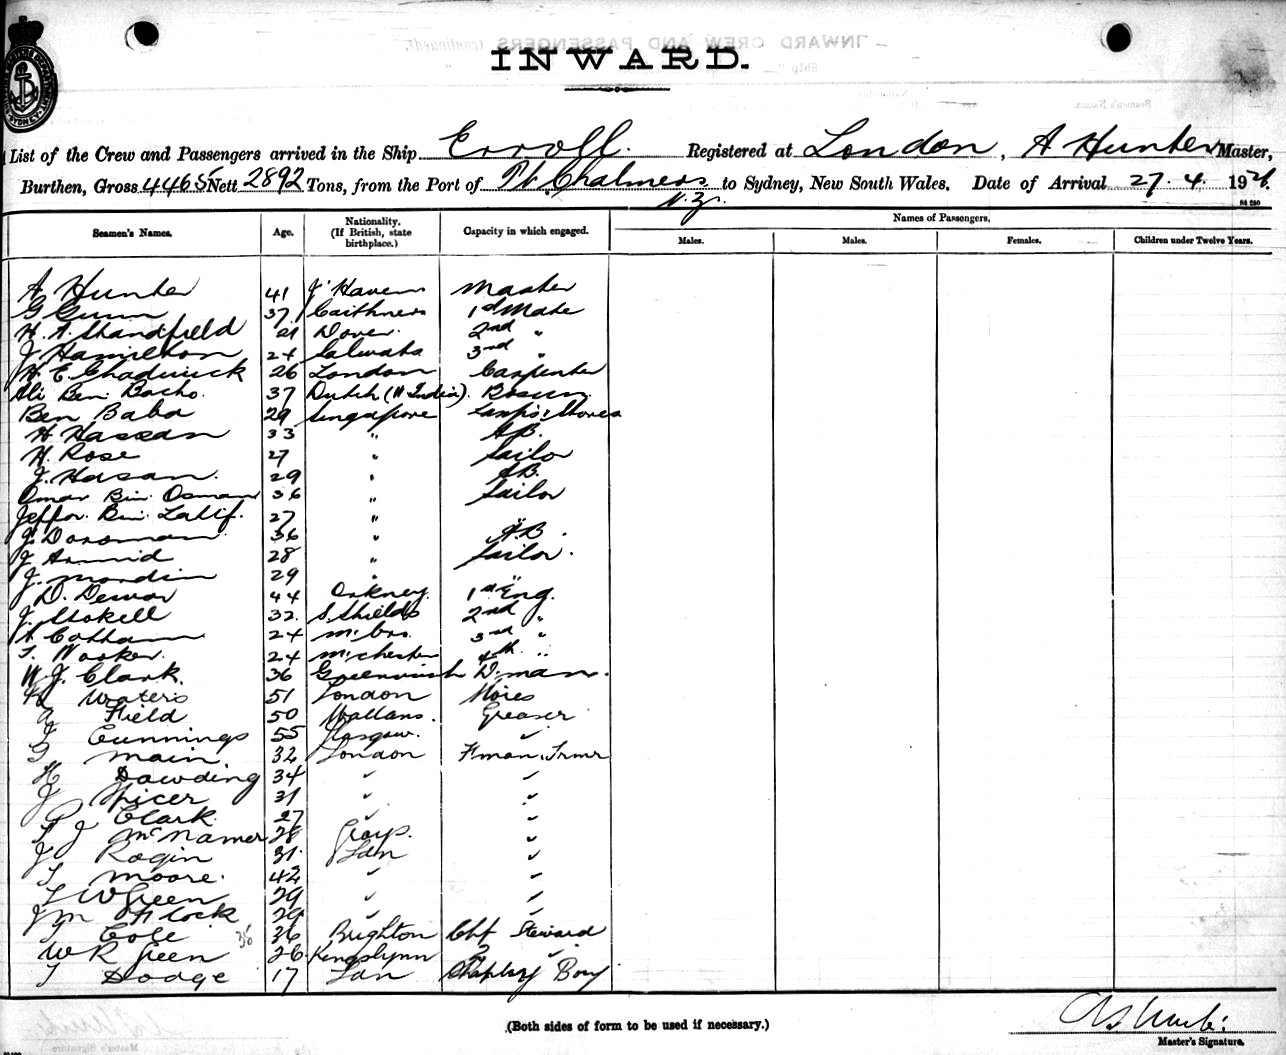 INWARD.
List of the Crew and Passengers arrived in the Ship Erroll. Registered at London, A Hunter Master,
Burthen, Gross 4465 Nett 2892 Tons, from the Port of Pt. Chalmers to Sydney, New South Wales. Date of Arrival 27. 4. 192
N.Z.
Seamen's Names. Age. Nationality. (If British, state birthplace.) Capacity in which engaged. Names of Passengers.
Males. Males. Females. Children under Twelve Years.
A Hunter 41 J' Haven Master
G Gunn 37 Caithness 1st Mate
H. A. Standfield 21 Dover. 2nd "
J Hamilton 24 3rd "
H. E. Chadwick 26 London Carpenter
Ali Ben Bacho. 37 Dutch (W India). Bosun.
Ben Baba 29 Singapore Lamps & Stores
H Hassan 33 " AB.
H. Rose 27 " Sailor
J. Hasan. 29 " AB.
Omar Bin Osman 36 " Sailor
Jeffor. Bin Latif. 27 " "
J. Dorsman. 36 " AB.
J 28 " Sailor.
J. Mordin 29 " "
D. Dewar 44 Orkney. 1st Eng.
J. Stokell 32. S. Shields 2nd "
A Cottam 24 M'bro. 3rd "
T. Worker. 24 M'chester 4th "
W. J. Clark. 36 Greenwich D. man.
Waters 51 London Stores
A Field 50 Greaser
J Cunnings 55 Glasgow. "
G Main. 32 London F'man & Trmr
H Dowding 34 " "
J Spicer 31 " "
P Clark. 27 " "
T J McNamer 28 "
J Rogin 31. Lon "
T Moore. 42 " "
T W Green 29 " "
J M 29 " "
T Cole 36 Brighton Chf Steward
W R Green 26 Kingslynn 2 "
T Dodge 17 Lon Boy
(Both sides of form to be used if necessary.)
Master's Signature.